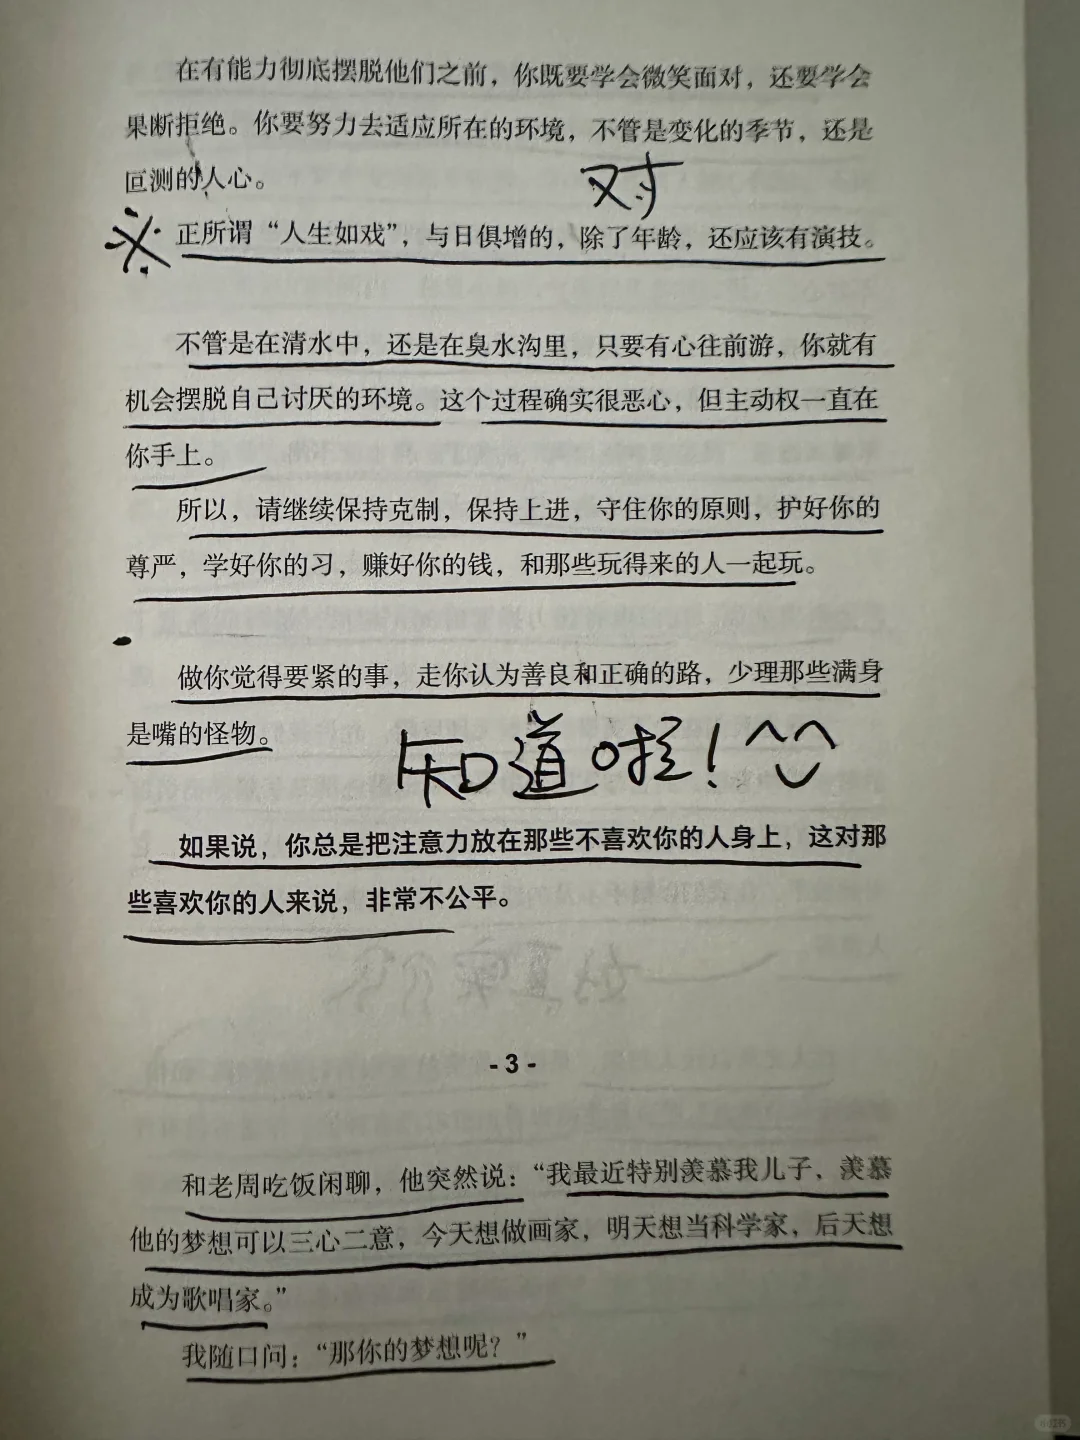 在有能力彻底摆脱他们之前，你既要学会微笑面对，还要学会
果断拒绝。你要努力去适应所在的环境，不管是变化的季节，还是
叵测的人心。
对
正所谓“人生如戏”，与日俱增的，除了年龄，还应该有演技。
不管是在清水中，还是在臭水沟里，只要有心往前游，你就有
机会摆脱自己讨厌的环境。这个过程确实很恶心，但主动权一直在
你手上。
所以，请继续保持克制，保持上进，守住你的原则，护好你的
尊严，学好你的习，赚好你的钱，和那些玩得来的人一起玩。
做你觉得要紧的事，走你认为善良和正确的路，少理那些满身
是嘴的怪物。
知道啦！^^
如果说，你总是把注意力放在那些不喜欢你的人身上，这对那
些喜欢你的人来说，非常不公平。
- 3 -
和老周吃饭闲聊，他突然说：“我最近特别羡慕我儿子，羡慕
他的梦想可以三心二意，今天想做画家，明天想当科学家，后天想
成为歌唱家。”
我随口问：“那你的梦想呢？”
小红书